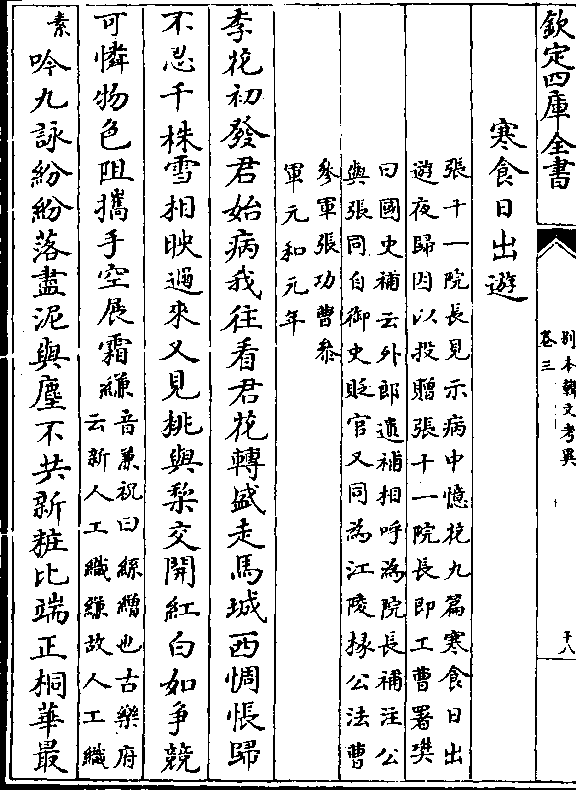 欽定四庫全書
別本韓文考異
卷三
十八
寒食日出遊
張十一院長見示病中憶花九篇寒食日出
遊夜歸因以投贈張十一院長即工曹署樊
曰國史補云外郎遺補相呼為院長補注公
與張同自御史貶官又同為江陵掾公法曹
參軍張功曹參
軍元和元年
李花初發君始病我往看君花轉盛走馬城西惆悵歸
不忍千株雪相映邇來又見桃與梨交開紅白如爭競
可憐物色阻攜手空展霜縑
音兼祝曰絲繒也古樂府
云新人工織縑故人工織
素
吟九詠紛紛落盡泥與塵不共新粧比端正桐華最